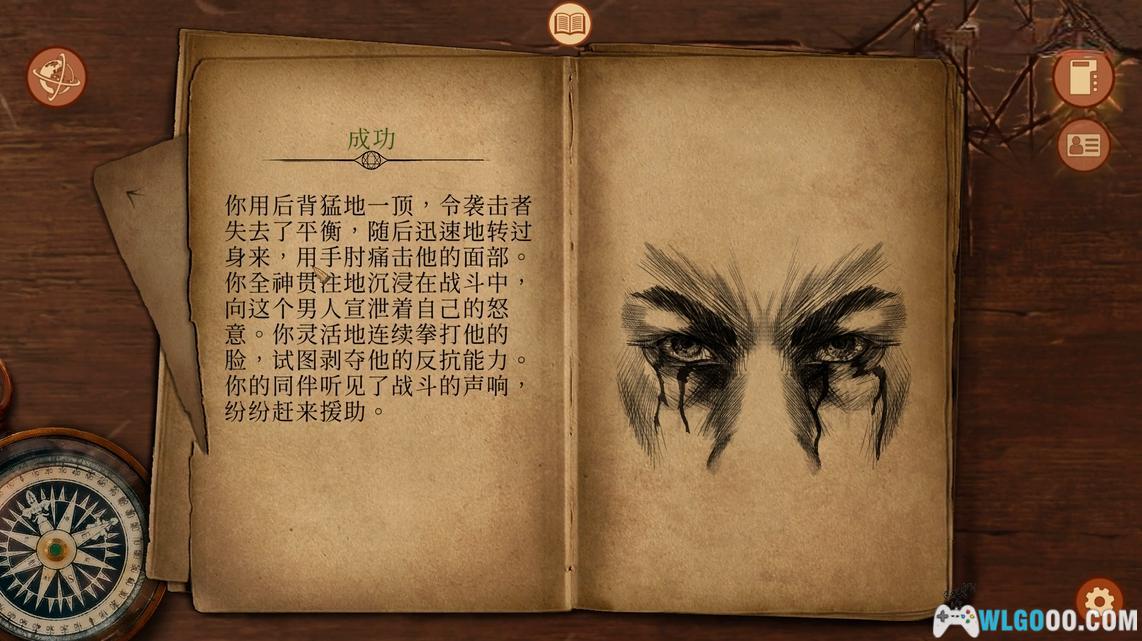 成功
你用后背猛地一顶，令袭击者
失去了平衡，随后迅速地转过
身来，用手肘痛击他的面部。
你全神贯注地沉浸在战斗中，
向这个男人宣泄着自己的怒
意。你灵活地连续拳打他的
脸，试图剥夺他的反抗能力。
你的同伴听见了战斗的声响，
纷纷赶来援助。
WLGOOO.COM